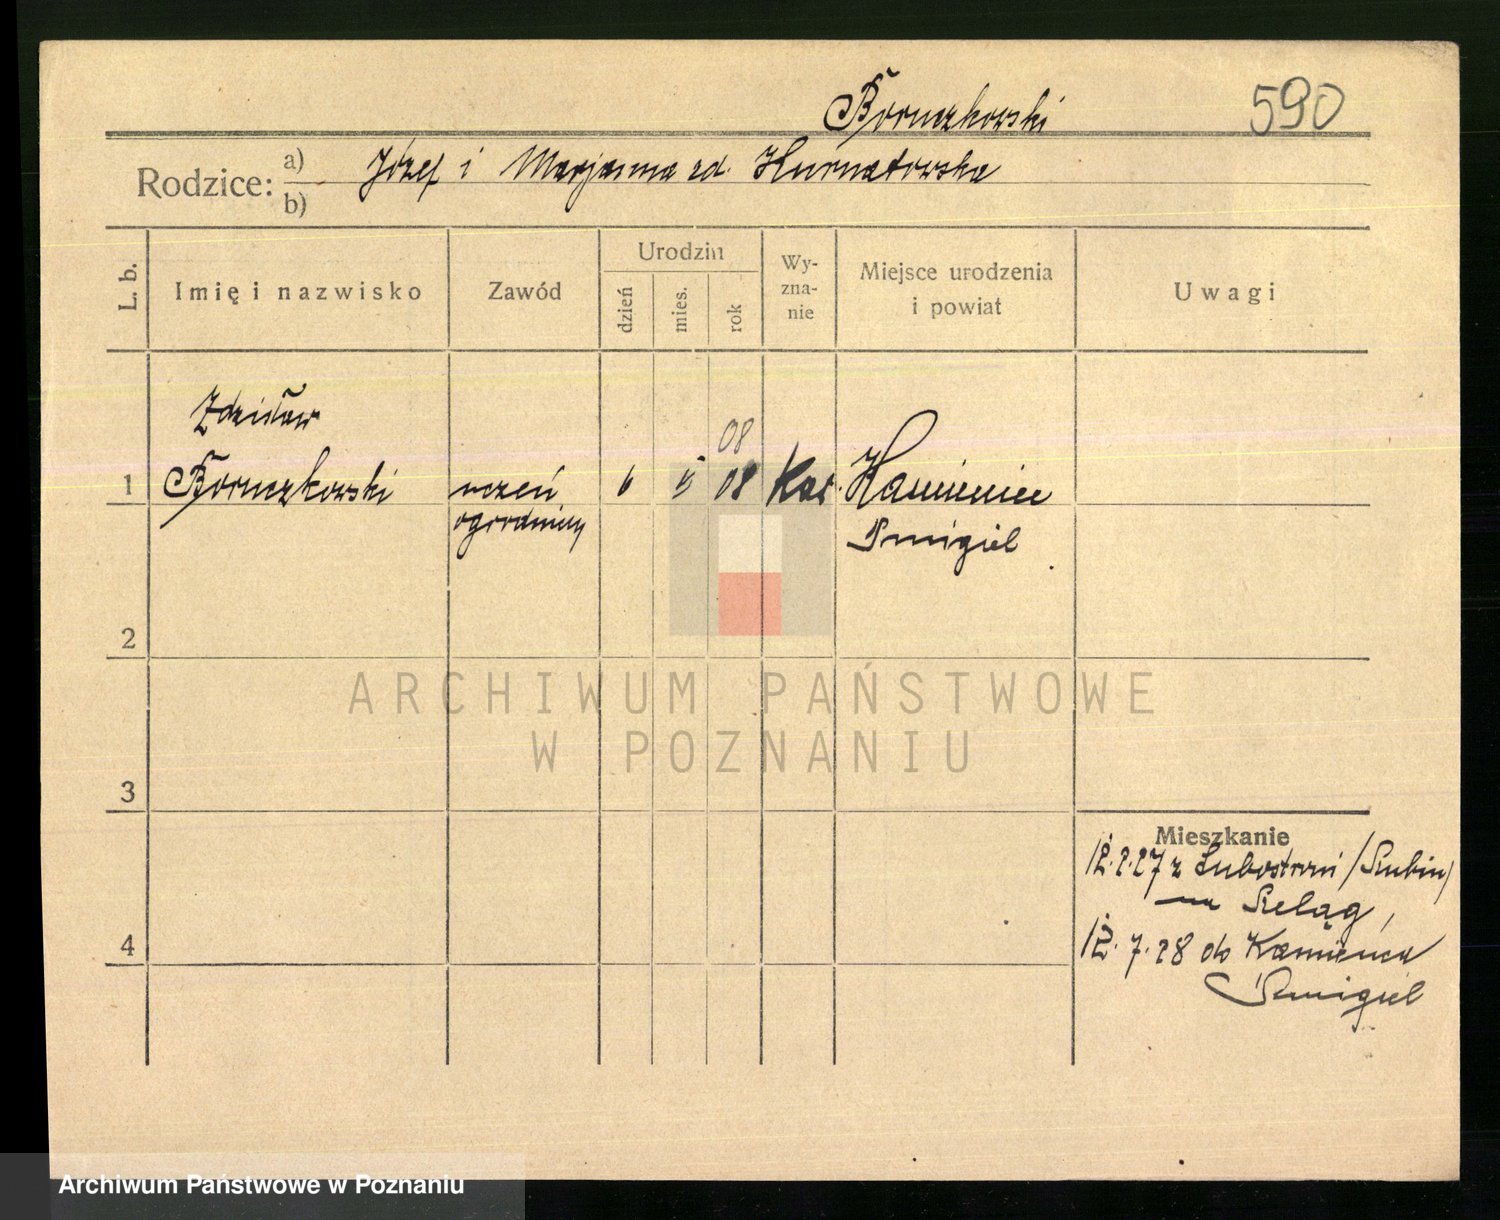 Boruczkowski
590
Rodzice: a) Józef i Marjanna zd. Kurnatowska
b)
L. b.
Imię i nazwisko
Zawód
Urodzin
dzień
mies.
rok
Wy-
zna-
nie
Miejsce urodzenia
i powiat
Uwagi
Zdzisław
08
1 Boruczkowski uczeń 6 5 08 Kat. Kamieniec
ogrodniczy Śmigiel
2
3
4
Mieszkanie
12.2.27 z Lubostroni /Szubin/
na Szeląg,
12.7.28 do Kamieńca
Śmigiel
ARCHIWUM PAŃSTWOWE
W POZNANIU
Archiwum Państwowe w Poznaniu